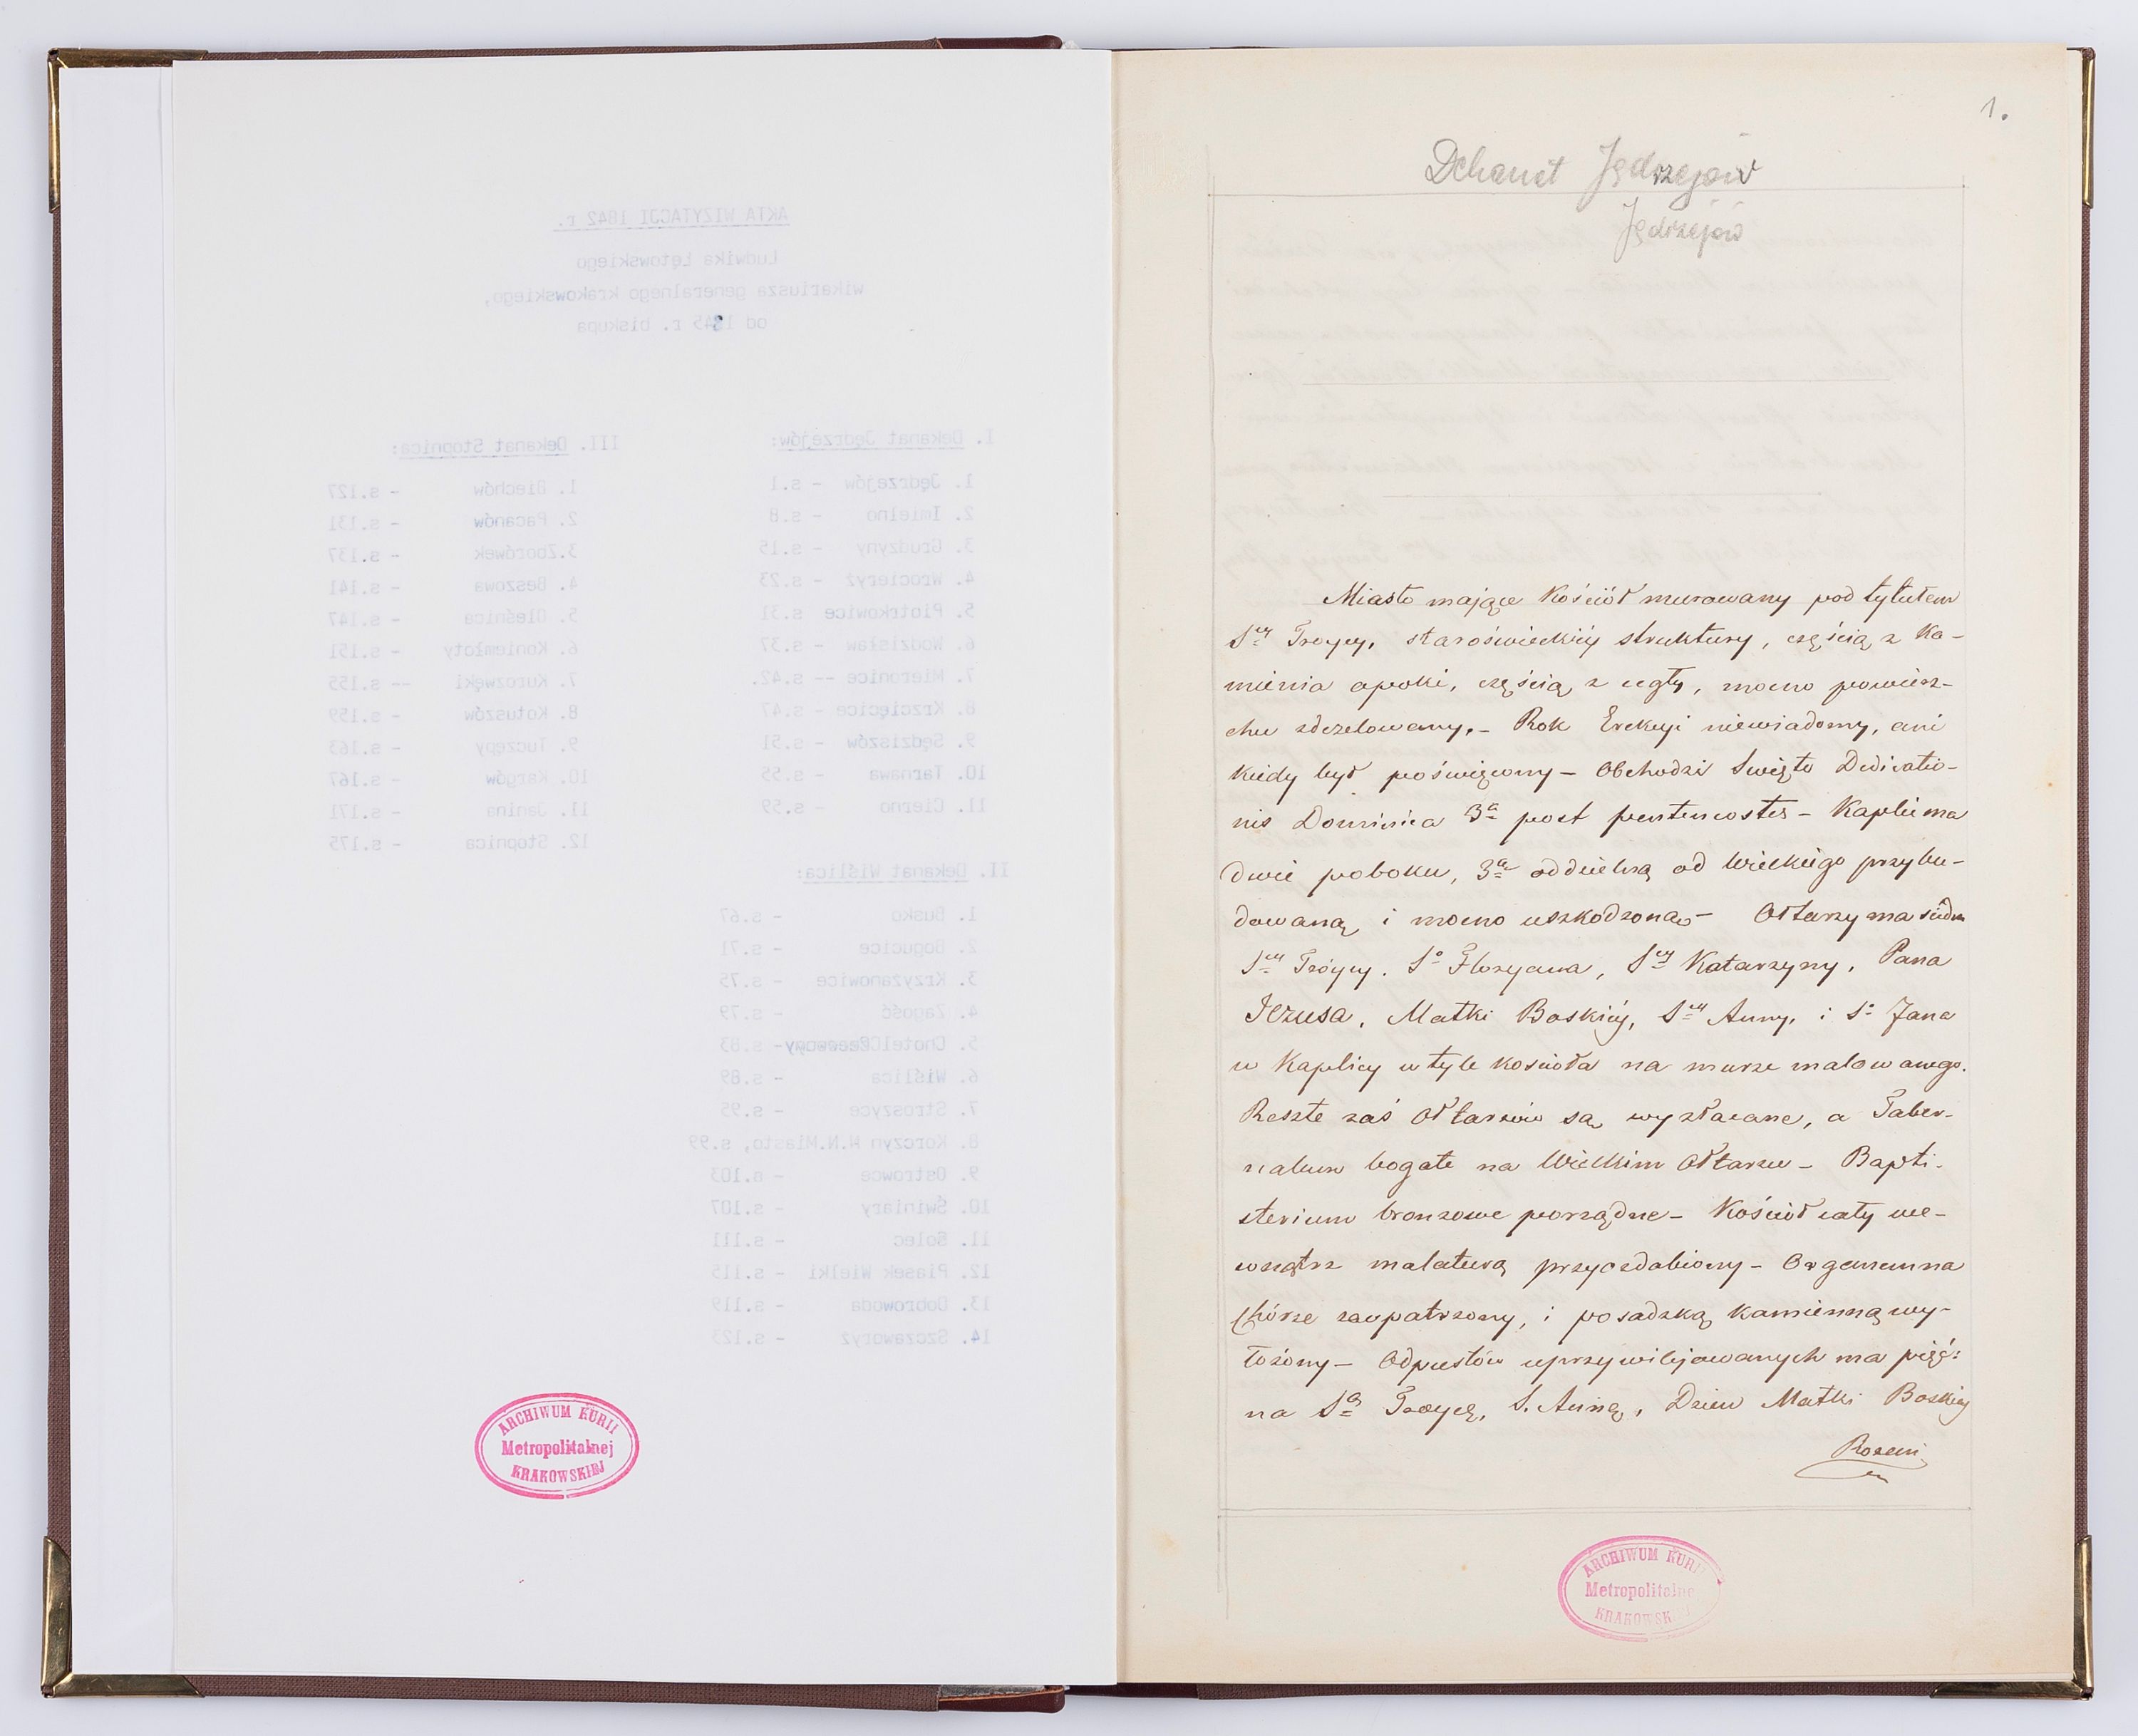 AKTA WIZYTACJI 1842 r.
Ludwika Łętowskiego
wikariusza generalnego krakowskiego,
od 1845 r. biskupa
I. Dekanat Jędrzejów:
1. Jędrzejów - s.1
2. Imielno - s.8
3. Grudzyny - s.15
4. Wrocieryż - s.23
5. Piotrkowice s.31
6. Wodzisław - s.37
7. Mieronice -- s.42.
8. Krzcięcice - s.47
9. Sędziszów - s.51
10. Tarnawa - s.55
11. Cierno - s.59
II. Dekanat Wiślica:
1. Busko - s.67
2. Bogucice - s.71
3. Krzyżanowice - s.75
4. Zagość - s.79
5. Chotel - s.83
6. Wiślica - s.89
7. Stroszyce - s.95
8. Korczyn N.N.Miasto, s.99
9. Ostrowce - s.103
10. Świniary - s.107
11. Solec - s.111
12. Piasek Wielki - s.115
13. Dobrowoda - s.119
14. Szczaworyż - s.123
III. Dekanat Stopnica:
1. Biechów - s.127
2. Pacanów - s.131
3.Zborówek - s.137
4. Beszowa - s.141
5. Oleśnica - s.147
6. Koniemłoty - s.151
7. Kurozwęki -- s.155
8. Kotuszów - s.159
9. Tuczępy - s.163
10. Kargów - s.167
11. Janina - s.171
12. Stopnica - s.175
ARCHIWUM KURII
Metropolitalnej
KRAKOWSKIEJ
1.
Dekanat Jędrzejów
Jędrzejów
Miasto mające Kościół murowany pod tytułem
Sej Troycy, staroświeckiéy struktury, częścią z Ka-
mienia opoki, częścią z cegły, mocno powierz-
chu zdezelowany. - Rok Erekcyi niewiadomy, ani
kiedy był poświęcony - Obchodzi Swięto Dedicatio-
nis Dominica 3a post pentecostes - Kaplic ma
dwie poboku, 3a oddzielną od Wielkiego przybu-
dowaną i mocno uszkodzoną - Ołtarzy ma siedm
Sej Tróycy. So Floryana, Sej Katarzyny, Pana
Jezusa, Matki Boskiéy, Sej Anny, i So Jana
w Kaplicy w tyle kościoła na murze malowanego.
Reszte zaś Ołtarzów są wyzłacane, a Taber-
nakum bogate na Wielkim Ołtarzu - Bapti-
sterium bronzowe porządne - Kościół cały we-
wnątrz malaturą przyozdabiony - Organem na
Chórze zaopatrzony, i posadzką kamienną wy-
łożony - Odpustów uprzywilejowanych ma pięć:
na Sa Troycę, S. Annę, Dzień Matki Boskiéy
ARCHIWUM KURII
Metropolitalnej
KRAKOWSKIEJ